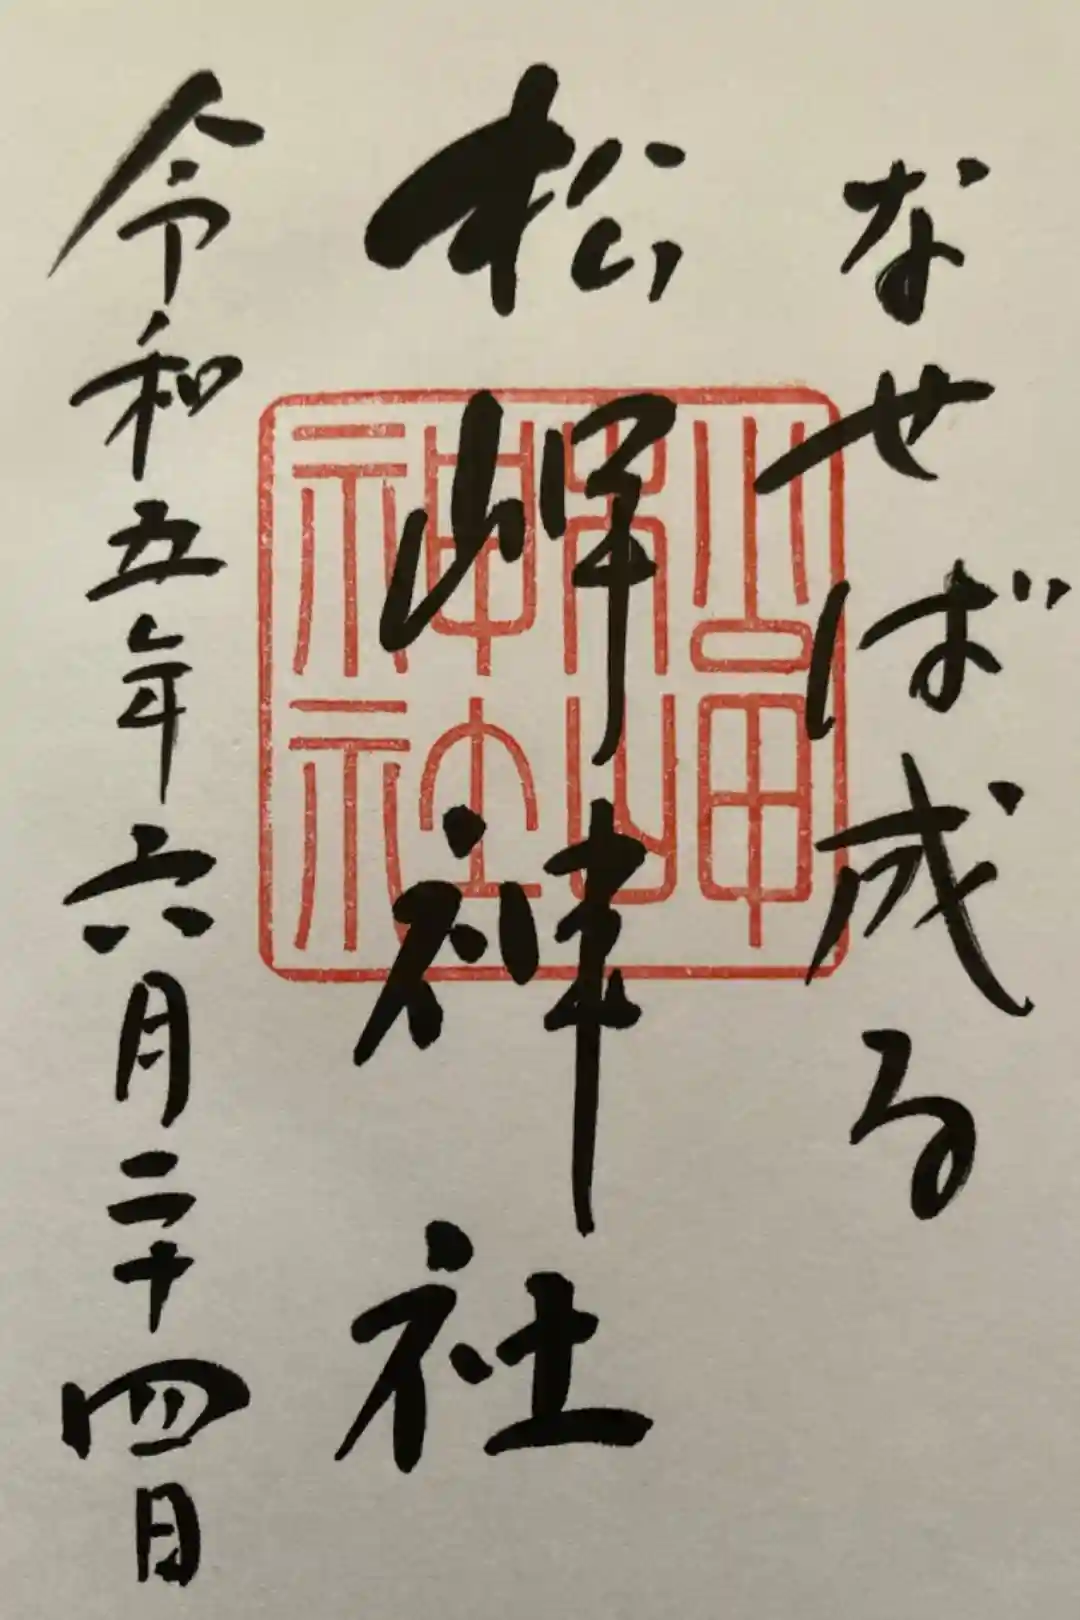 なせば成る
松岬神社
令和五年六月二十四日
松岬
神社